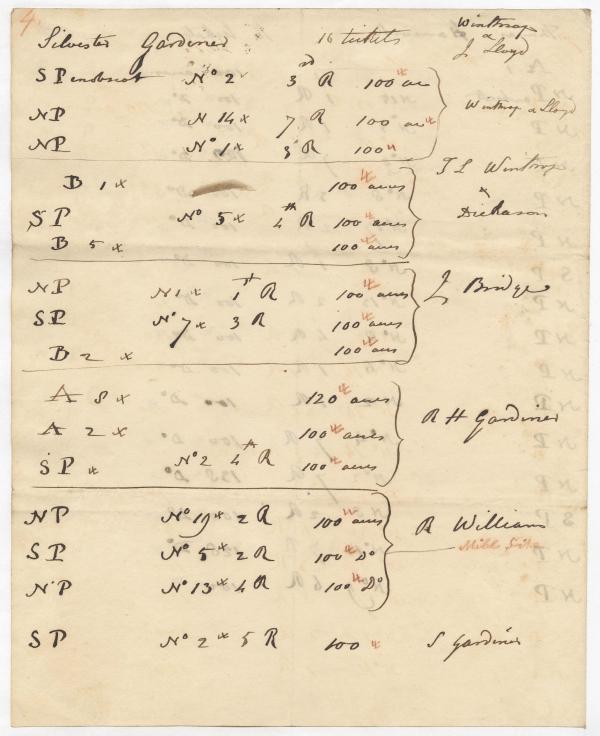 4.
Silvester Gardiner 16 tickets Winthrop & J Lloyd
S Penobscot No 2 3rd R 100 ac Winthrop & Lloyd
NP N 14 x 7 R 100 ac
NP No 1 x 3d R 100
B 1 x 100 acres T L Winthrop &
SP No 5 x 4th R 100 acres Dickason
B 5 x 100 acres
NP N 1 x 1st R 100 acres J Bridge
SP No 7 x 3 R 100 acres
B 2 x 100 acres
A 8 x 120 acres
A 2 x 100 acres R H Gardiner
SP x No 2 4th R 100 acres
NP No 19 x 2 R 100 acres R Williams
SP No 5 x 2 R 100 Do Mill Site
NP No 13 x 4 R 100 Do
SP No 2 x 5 R 100 S Gardiner